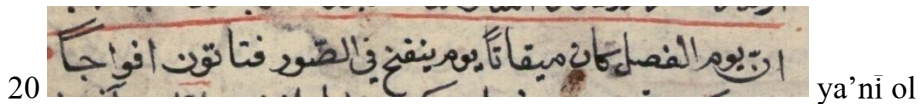 20 انّ يوم الفصل كان ميقاتاً يوم ينفخ في الصّور فتاتون افواجاً ya’nī ol